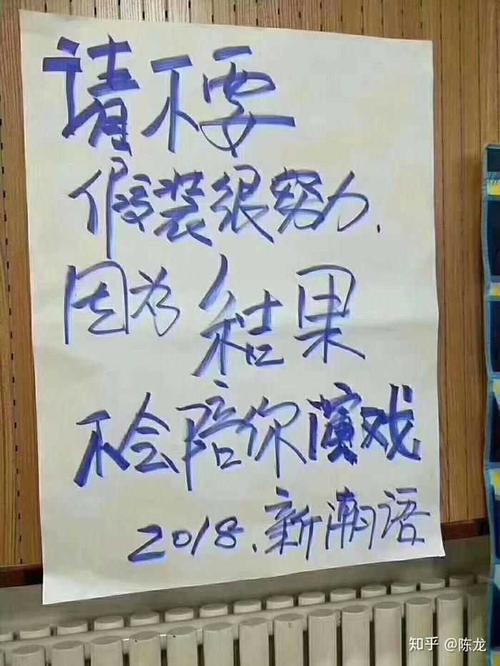 请不要
假装很努力.
因为 结果
不会陪你演戏
2018.新潮语
知乎 @陈龙